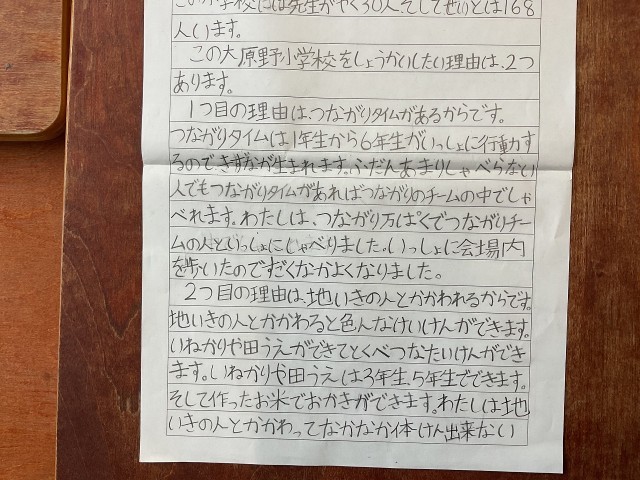 この小学校には先生がやく30人そしてせいとは168
人います。
この大原野小学校をしょうかいしたい理由は、2つ
あります。
1つ目の理由は、つながりタイムがあるからです。
つながりタイムは1年生から6年生がいっしょに行動す
るので、きずなが生まれます。ふだんあまりしゃべらない
人でもつながりタイムがあればつながりのチームの中でしゃ
べれます。わたしは、つながり万ぱくでつながりチー
ムの人といっしょにしゃべりました。いっしょに会場内
を歩いたのですごくなかよくなりました。
2つ目の理由は、地いきの人とかかわれるからです。
地いきの人とかかわると色んなけいけんができます。
いねかりや田うえができてとくべつなたいけんができ
ます。いねかりや田うえは3年生、5年生でできます。
そして作ったお米でおかきができます。わたしは地
いきの人とかかわってなかなか体けん出来ない